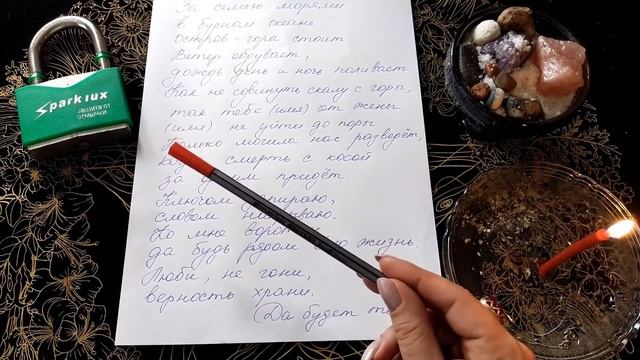 Sparklux
ЗАЩИТА ОТ
ОТМЫЧКИ
За семью морями
в бурном океане
остров-гора стоит.
Ветер обдувает,
дождь день и ночь поливает.
Как не сдвинуть скалу с горы,
так тебе (имя) от жены
(имя) не уйти до поры
Только могила нас разведёт,
смерть с косой
за придёт.
Ключом запираю,
словом
Ко мне
да будь рядом жизнь.
Люби, не гони,
верность храни.
(Да будет